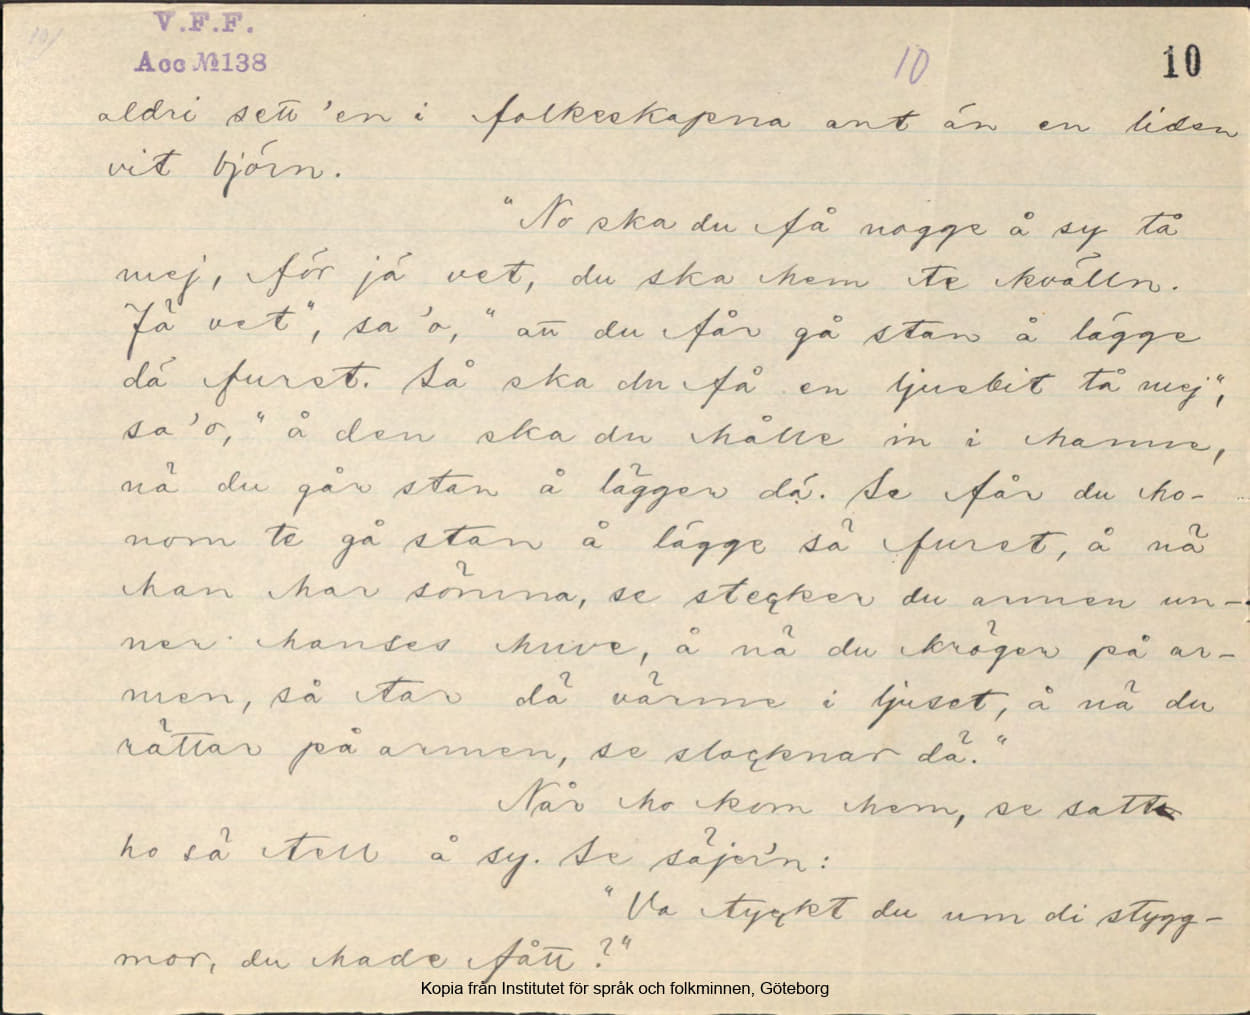 V.F.F.
Acc №138
10
10
aldri sett 'en i folkeskapna ant än en liden
vit björn.
"No ska du få nogge å sy tå
mej, för jä vet, du ska hem te kvälln.
Jä vet", sa'o, "att du får gå stan å lägge
dä furst. Så ska du få en ljusbit tå mej",
sa'o, "å den ska du hålle in i hanne,
nä du går stan å lägger dä. Se får du ho-
nom te gå stan å lägge sä furst, å nä
han har sömna, se stecker du armen un-
ner hanses huve, å nä du kröger på ar-
men, så tar dä värme i ljuset, å nä du
rättar på armen, se slocknar dä."
Når ho kom hem, se satte
ho sä tell å sy. Se säjer'n:
"Va tyckt du um di stygg-
mor, du hade fått?"
Kopia från Institutet för språk och folkminnen, Göteborg